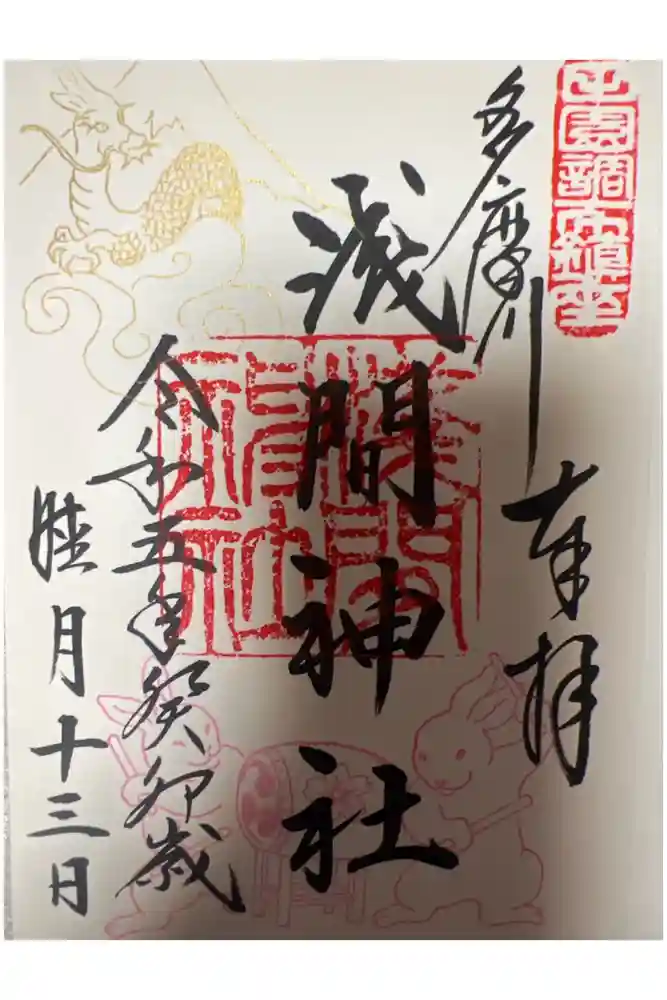 田園調布鎮座
奉拝
多摩川
浅間神社
淺間神社
令和五年癸卯歳
睦月十三日